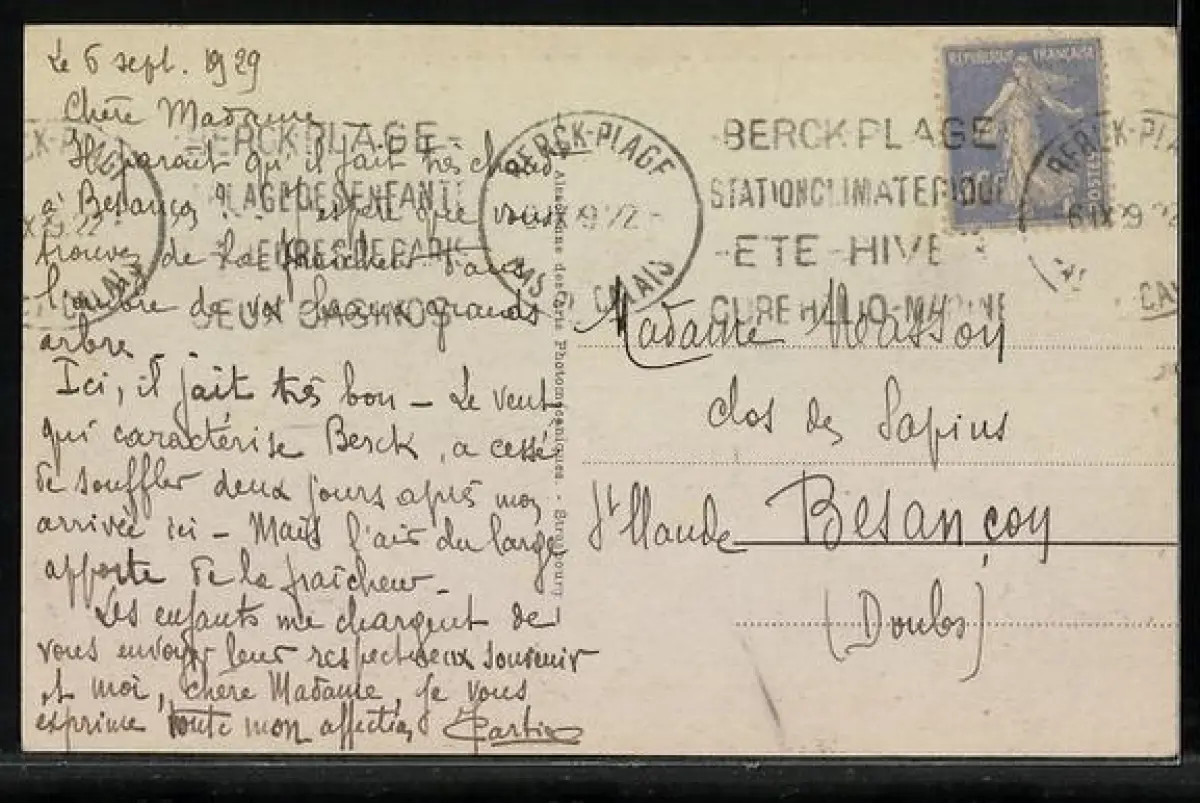 Le 6 sept. 1929
Chère Madame
Il paraît qu'il fait très chaud
à Besançon ... j'espère que vous
trouvez de la fraîcheur dans
l'ombre de vos beaux grands
arbres
Ici, il fait très bon – Le vent
qui caractérise Berck, a cessé
de souffler deux jours après mon
arrivée ici – Mais l'air du large
apporte de la fraîcheur –
Les enfants me chargent de
vous envoyer leur respectueux souvenir
et moi, chère Madame, je vous
exprime toute mon affection
BERCK PLAGE
PLAGE DES ENFANTS
DEUX CASINOS
BERCK-PLAGE
PAS DE CALAIS
des Arts Photomécaniques. - Strasbourg
BERCK PLAGE
STATION CLIMATERIQUE
ETE - HIVER
CURE HELIO-MARINE
REPUBLIQUE FRANÇAISE
POSTES
BERCK-PLAGE
Madame Masson
clos des Sapins
St Claude Besançon
(Doubs)